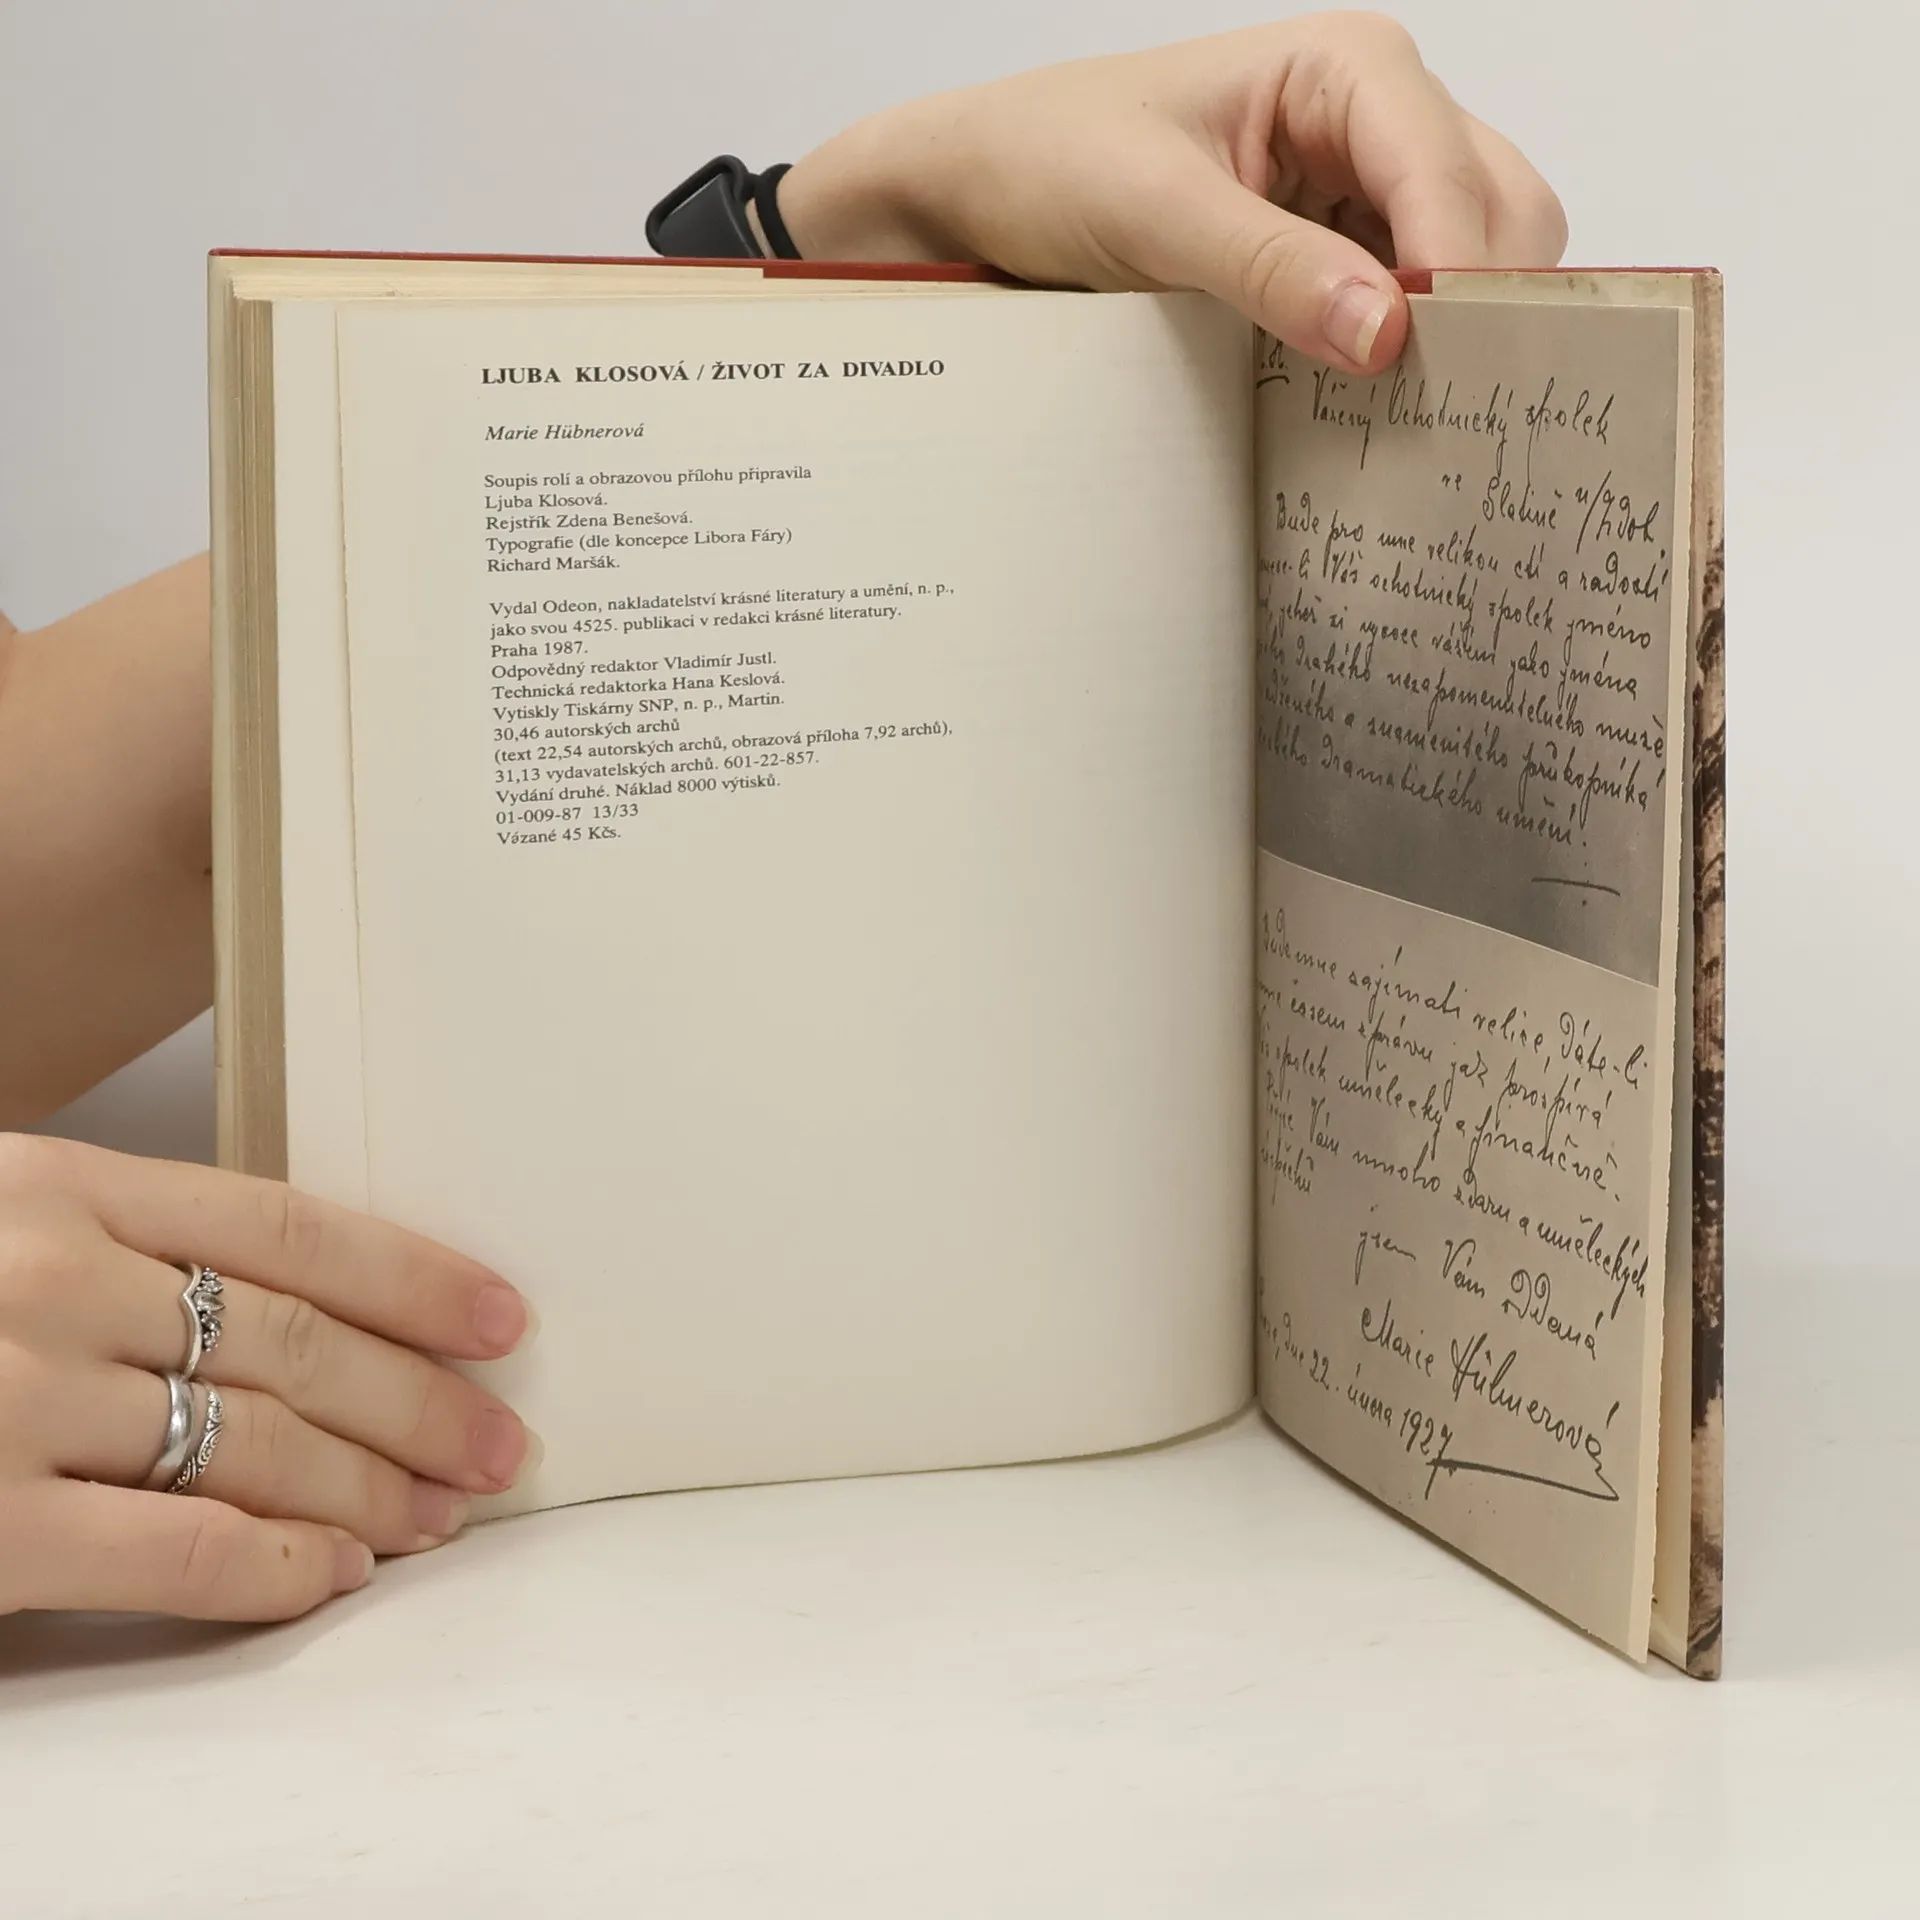 LJUBA KLOSOVÁ / ŽIVOT ZA DIVADLO
Marie Hübnerová
Soupis rolí a obrazovou přílohu připravila
Ljuba Klosová.
Rejstřík Zdena Benešová.
Typografie (dle koncepce Libora Fáry)
Richard Maršák.
Vydal Odeon, nakladatelství krásné literatury a umění, n. p.,
jako svou 4525. publikaci v redakci krásné literatury.
Praha 1987.
Odpovědný redaktor Vladimír Justl.
Technická redaktorka Hana Keslová.
Vytiskly Tiskárny SNP, n. p., Martin.
30,46 autorských archů
(text 22,54 autorských archů, obrazová příloha 7,92 archů),
31,13 vydavatelských archů. 601-22-857.
Vydání druhé. Náklad 8000 výtisků.
01-009-87 13/33
Vázané 45 Kčs.
Vážený Ochotnický spolek
ve Slatině n/Zdob.
Bude pro mne velikou ctí a radostí
Váš ochotnický spolek jméno
jehož si vysoce vážím jako jména
drahého nezapomenutelného muže
a znamenitého průkopníka
dramatického umění.
Bude mne zajímati velice, dáte-li
mne časem zprávu jak prospívá
spolek umělecky a finančně.
Vám mnoho zdaru a uměleckých
úspěchů
jsem Vám oddaná
Marie Hübnerová
dne 22. února 1927